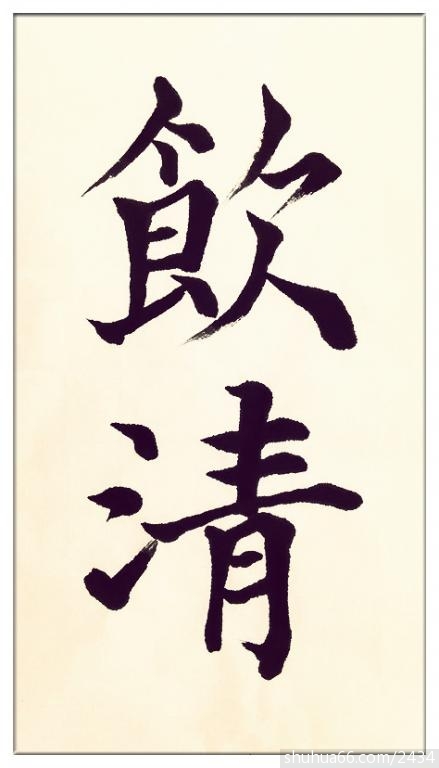 飲
清
shuhua66.com/2434